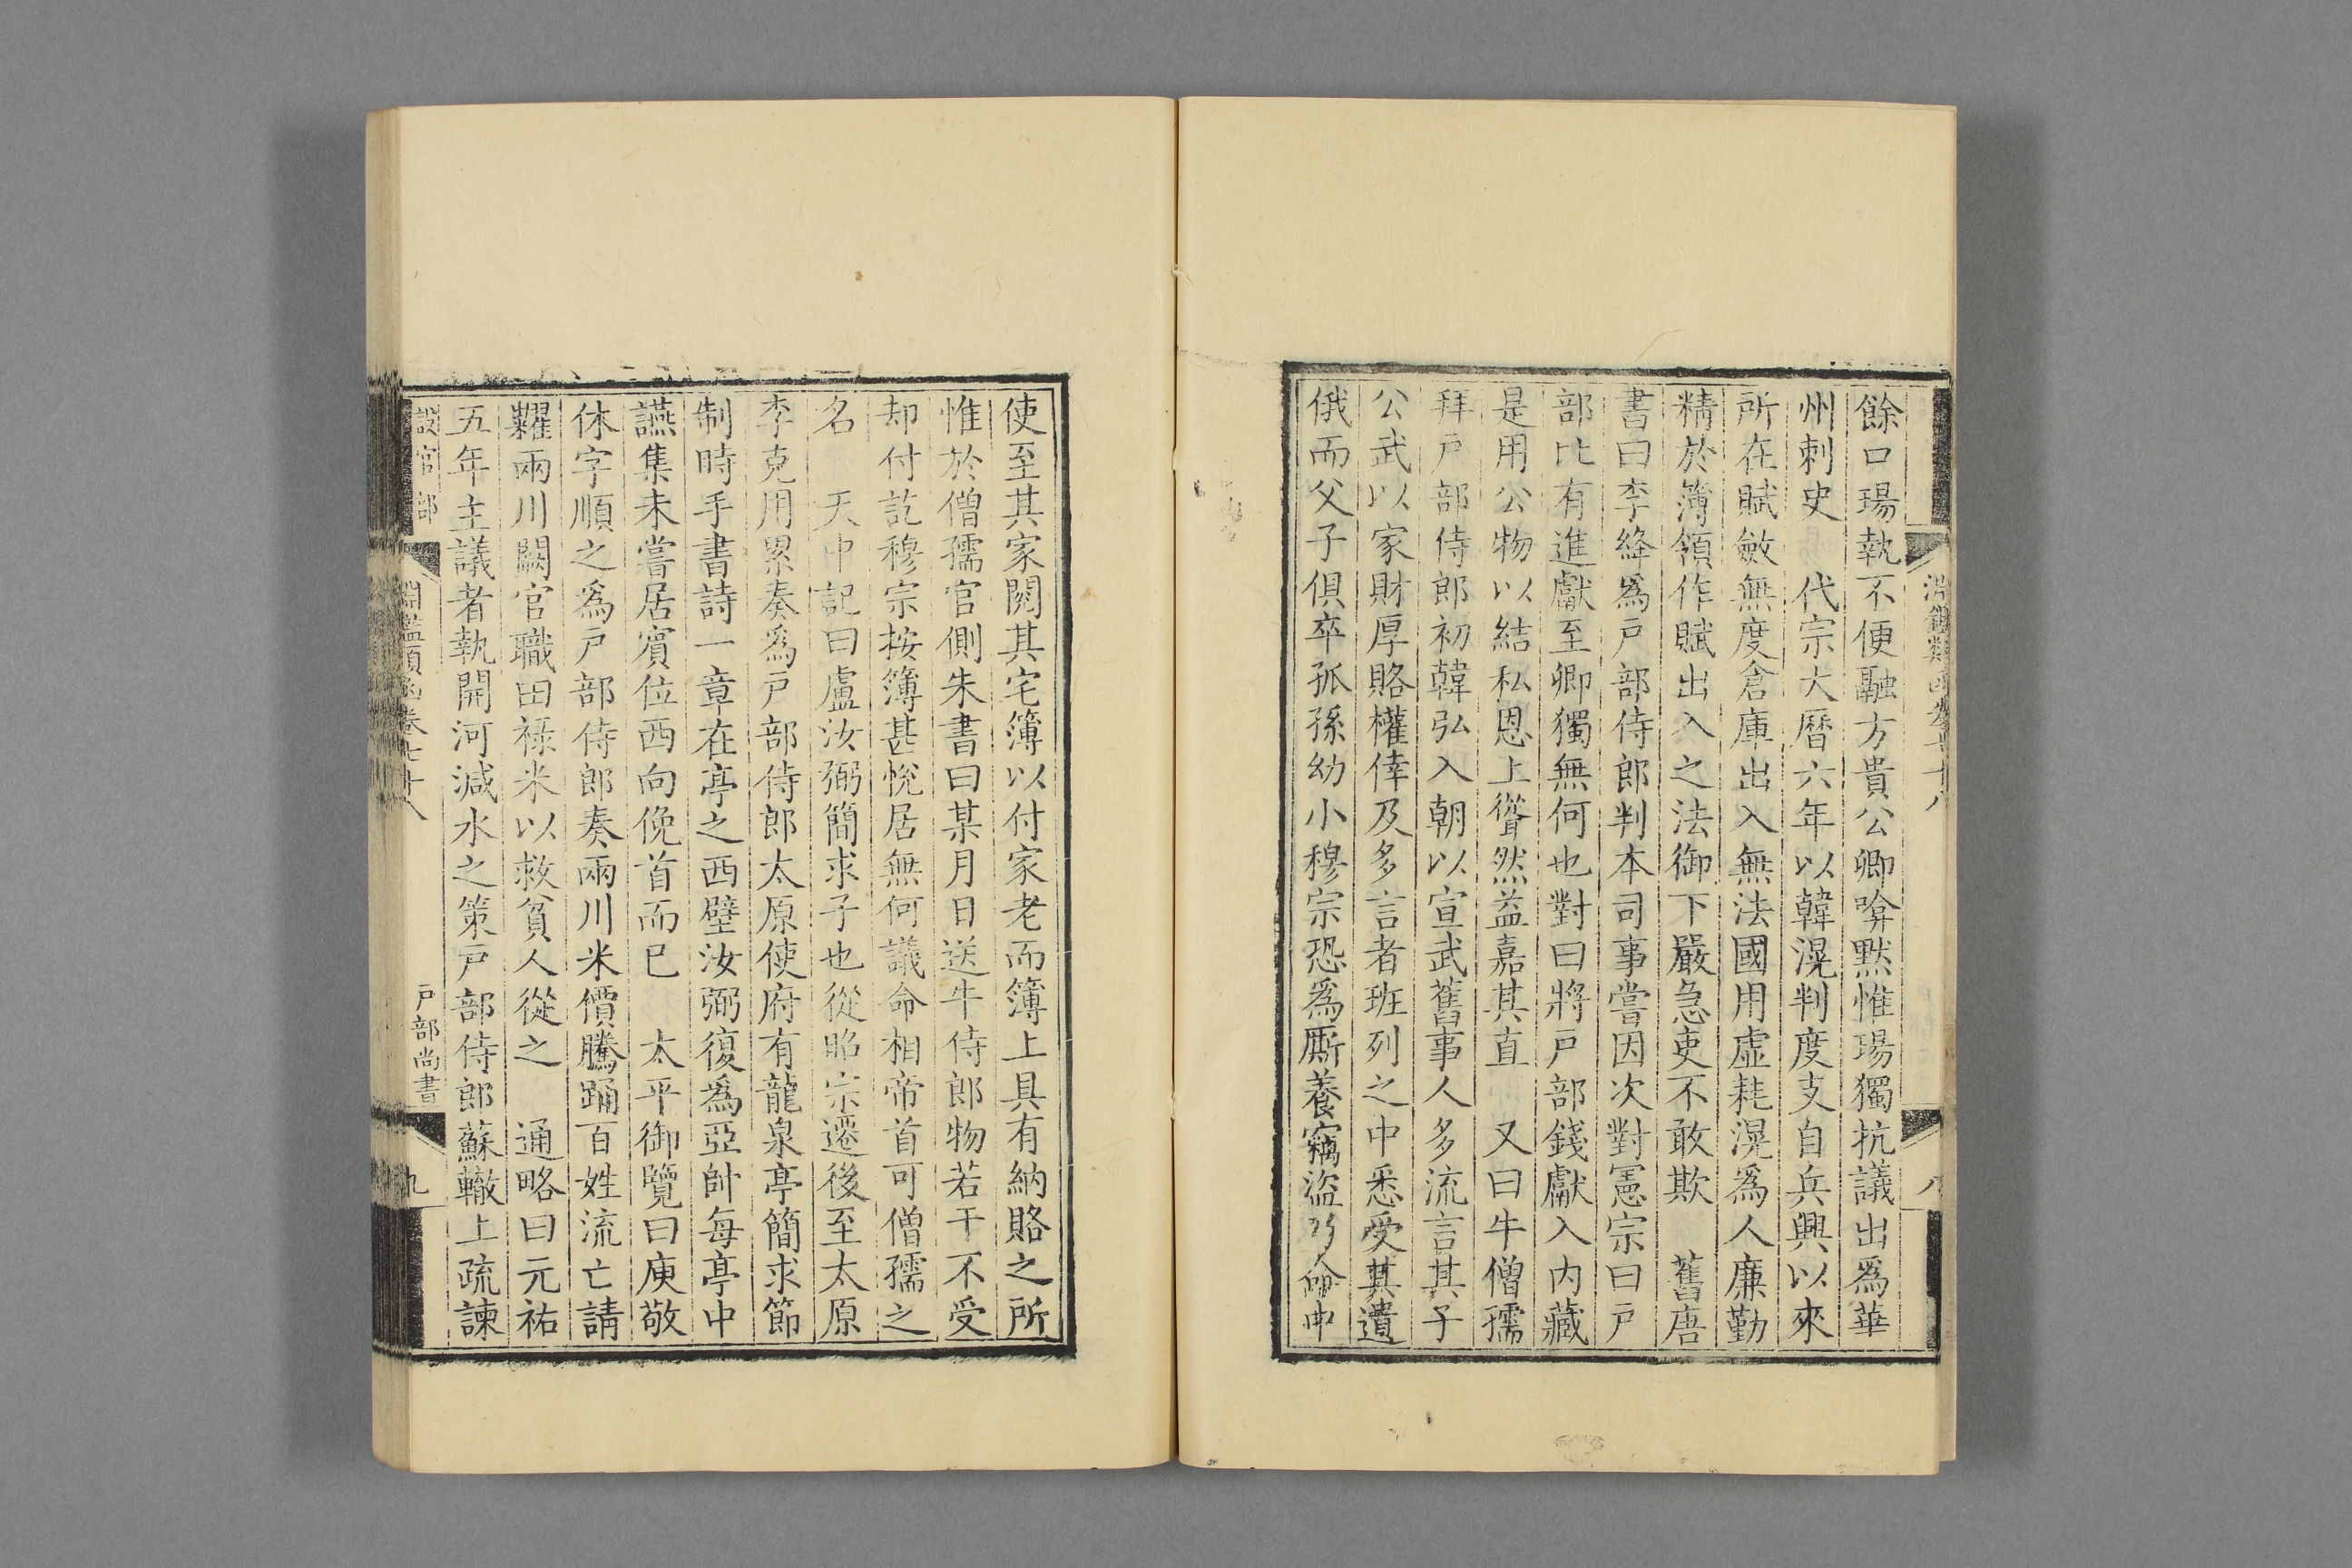 餘口瑒執不便融方貴公卿唫默惟瑒獨抗議出爲華
州刺史　代宗大曆六年以韓滉判度支自兵興以來
所在賦斂無度倉庫出入無法國用虛耗滉爲人廉勤
精於簿領作賦出入之法御下嚴急吏不敢欺　舊唐
書曰李絳爲戸部侍郎判本司事嘗因次對憲宗曰戸
部比有進獻至卿獨無何也對曰將戸部錢獻入内藏
是用公物以結私恩上聳然益嘉其直　又曰牛僧孺
拜戸部侍郎初韓弘入朝以宣武舊事人多流言其子
公武以家財厚賂權倖及多言者班列之中悉受其遺
俄而父子俱卒孤孫幼小穆宗恐爲厮養竊盜乃命中
淵鑑類函卷七十八
八
使至其家閱其宅簿以付家老而簿上具有納賂之所
惟於僧孺官側朱書曰某月日送牛侍郎物若干不受
却付訖穆宗按簿甚悅居無何議命相帝首可僧孺之
名　天中記曰盧汝弼簡求子也從昭宗遷後至太原
李克用累奏爲戸部侍郎太原使府有龍泉亭簡求節
制時手書詩一章在亭之西壁汝弼復爲亞帥每亭中
讌集未嘗居賓位西向俛首而已　太平御覽曰庾敬
休字順之爲戸部侍郎奏兩川米價騰踊百姓流亡請
糶兩川闕官職田祿米以救貧人從之　通略曰元祐
五年主議者執開河減水之策戸部侍郎蘇轍上疏諫
設官部
淵鑑類函卷七十八
戸部尚書
九